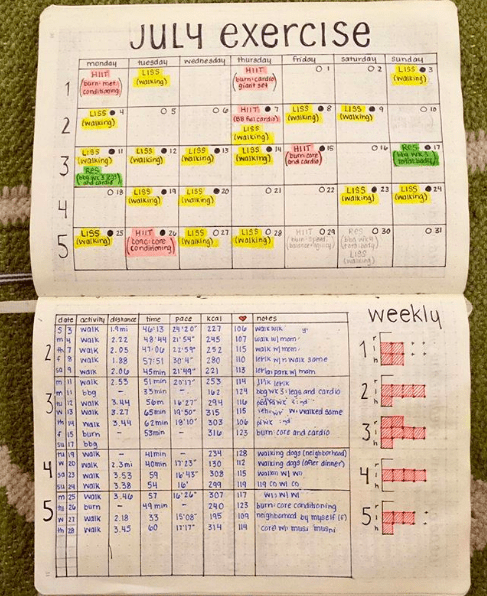 July exercise
monday tuesday wednesday thursday friday saturday sunday
1
HIIT
(burn: met.
conditioning)
LISS
(walking)
HIIT
(burn: cardio
giant set)
1
2
LISS 3
(walking)
2
LISS 4
(walking)
5
6
HIIT 7
LISS
(walking)
LISS 8
(walking)
LISS 9
(walking)
10
3
LISS 11
(walking)
RES
and cardio)
LISS 12
(walking)
LISS 13
(walking)
LISS 14
(walking)
HIIT 15
(burn: core
and cardio)
16
RES 17
(bbg wk 3
total body)
4
18
LISS 19
(walking)
LISS 20
(walking)
21
22
LISS 23
(walking)
LISS 24
(walking)
5
LISS 25
(walking)
HIIT 26
conditioning)
LISS 27
(walking)
LISS 28
(walking)
HIIT 29
RES 30
LISS
(walking)
31
date activity distance time pace kcal ♥ notes
2
S 3 walk 1.9mi 46'13 24'20" 227 106 walk
m 4 walk 2.22 48'44 21'54" 245 107 walk w/ mom
th 7 walk 2.03 47:06 22'59" 252 115 walk w/ mom
f 8 walk 1.88 57:51 30'4" 280 110
sa 9 walk 2.06 45min 21'49" 221 113 park w/ mom
3
m 11 walk 2.53 51min 20'17" 253 114
m 11 bbg - 33min - 162 124 bbg wk 3: legs and cardio
tu 12 walk 3.44 56m 16'27" 294 116
w 13 walk 3.27 65min 19'50" 315 115 walked some
th 14 walk 3.44 62min 18'10" 303 106
f 15 burn - 53min - 316 123 burn: core and cardio
su 17 bbg
4
tu 19 walk - 41min - 234 128 walking dogs (neighborhood)
w 20 walk 2.3mi 40min 17'23" 130 112 walking dogs (after dinner)
sa 23 walk 3.53 59 16'43" 308 115
su 24 walk 3.38 54 16" 299 119
5
m 25 walk 3.46 57 16'26" 307 117
tu 26 burn - 49min - 240 123 burn: core conditioning
w 27 walk 2.18 33 15'08" 195 109 neighborhood by myself (F)
th 28 walk 3.45 60 17'17" 314 119
weekly
1 r
l
h
2 r
l
h
3 r
l
h
4 r
l
h
5 r
l
h